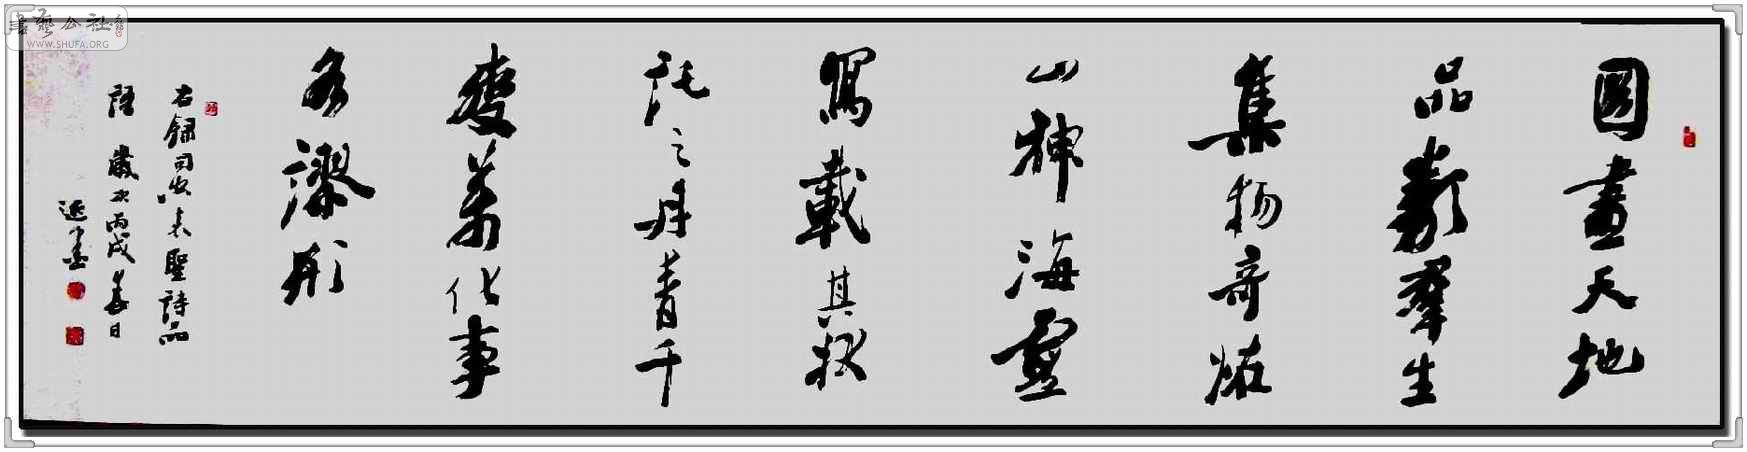 圖畫天地
品類羣生
集物竒恠
山神海靈
寫載其狀
託之丹青千
變萬化事
各繆形
右錄司空表聖詩品
語 歲次丙戌日
書藝公社
WWW.SHUFA.ORG